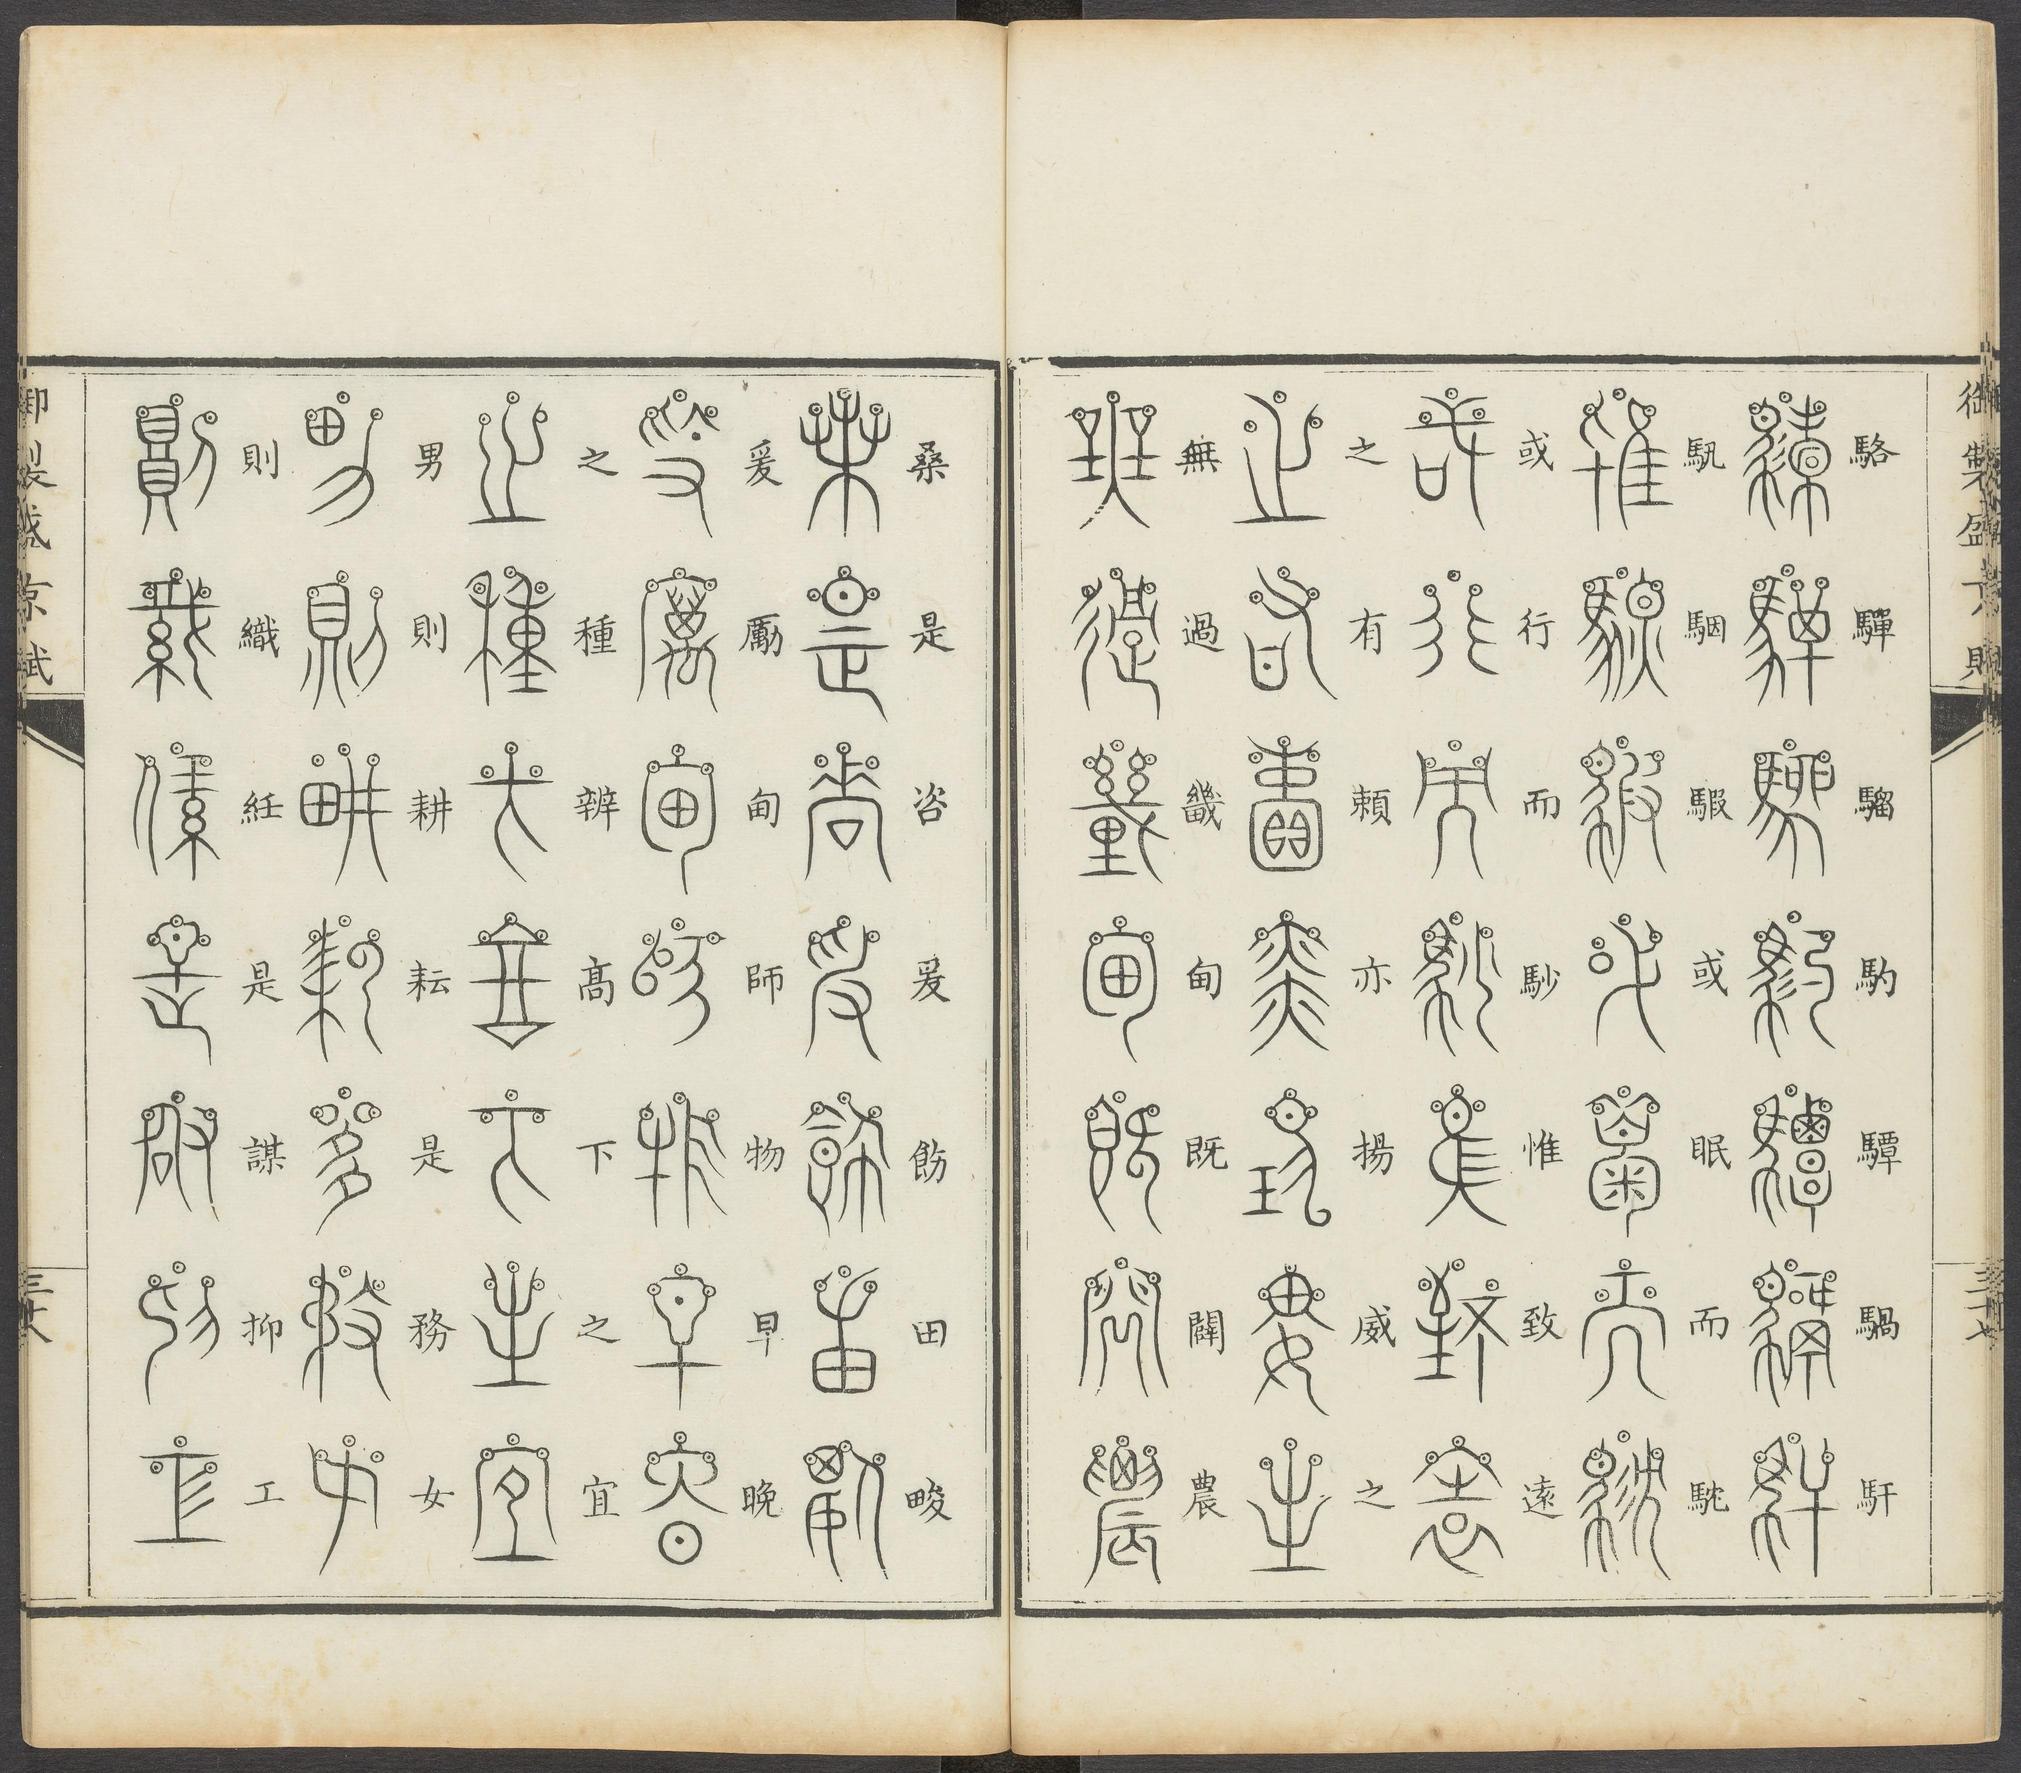 御製盛京賦
駱驒騮馰驔騧馯
馻駰騢或眠而駾
或行而鈔惟致遠
之有頼亦揚威之
無過畿甸既闢農
桑是咨爰飭田畯
爰勵甸師物早晚
之種辨高下之宜
男則耕耘是務女
則織紝是謀抑工
御製盛京賦